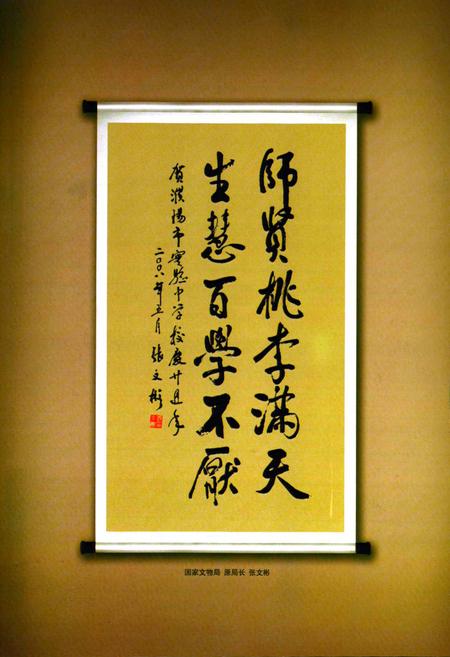 師賢桃李滿天
生慧百學不厭
贺濮陽市实驗中学校慶廿週年
二〇〇八年五月 張文彬
国家文物局 原局长 张文彬